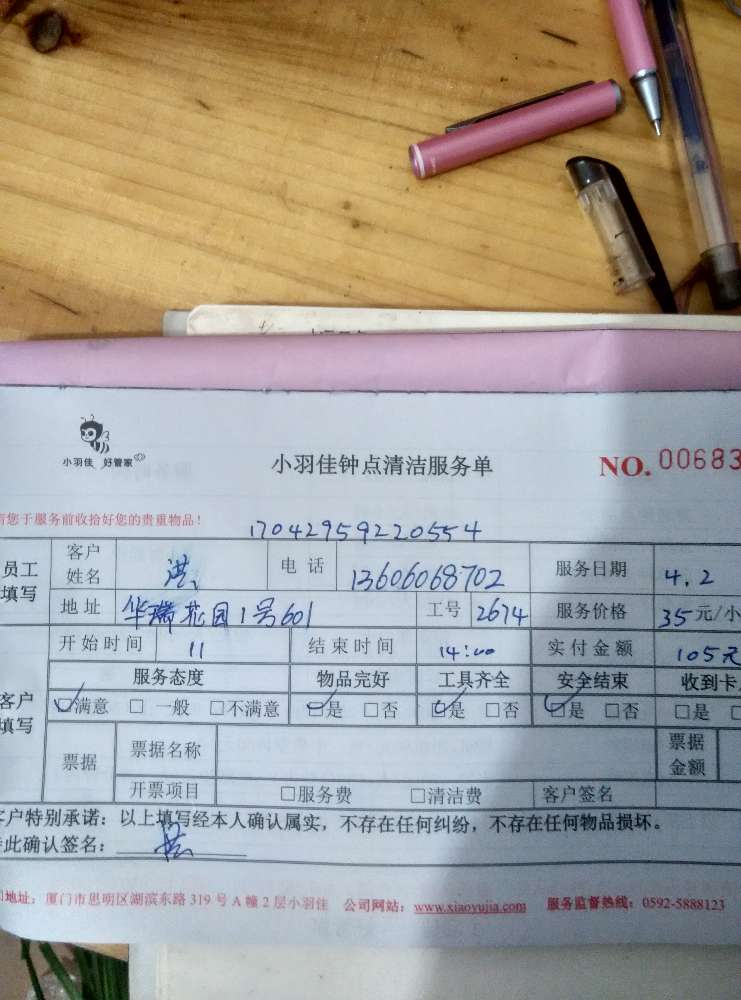 小羽佳 好管家
小羽佳钟点清洁服务单
NO. 00683
您于服务前收拾好您的贵重物品！
17042959220554
员工填写 客户姓名 洪 电话 13606068702 服务日期 4.2
地址 华瑞花园1号601 工号 2674 服务价格 35元/小
客户填写 开始时间 11 结束时间 14:00 实付金额 105元
服务态度 物品完好 工具齐全 安全结束 收到卡
☑满意 □一般 □不满意 ☑是 □否 ☑是 □否 ☑是 □否 □是
票据 票据名称 票据金额
开票项目 □服务费 □清洁费 客户签名
客户特别承诺：以上填写经本人确认属实，不存在任何纠纷，不存在任何物品损坏。
此确认签名：
地址：厦门市思明区湖滨东路319号A幢2层小羽佳 公司网站：www.xiaoyujia.com 服务监督热线：0592-5888123